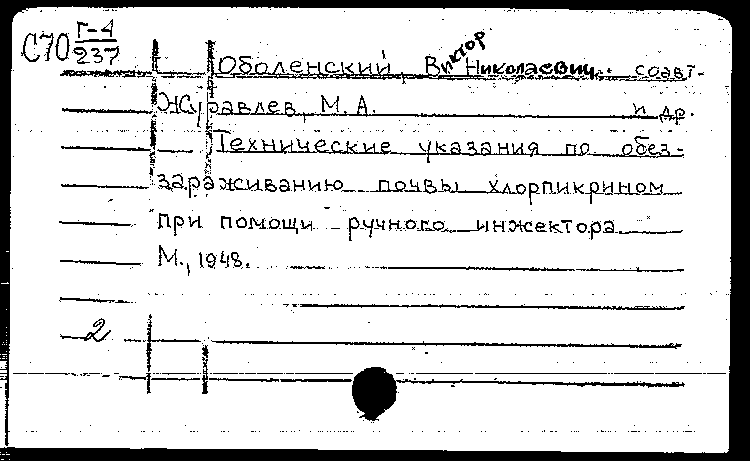 С70 Г-4
237
Оболенский, Виктор Николаевич. соавт.
Журавлев, М. А. и др.
Технические указания по обез-
зараживанию почвы хлорпикрином
при помощи ручного инжектора.
М., 1948.
2